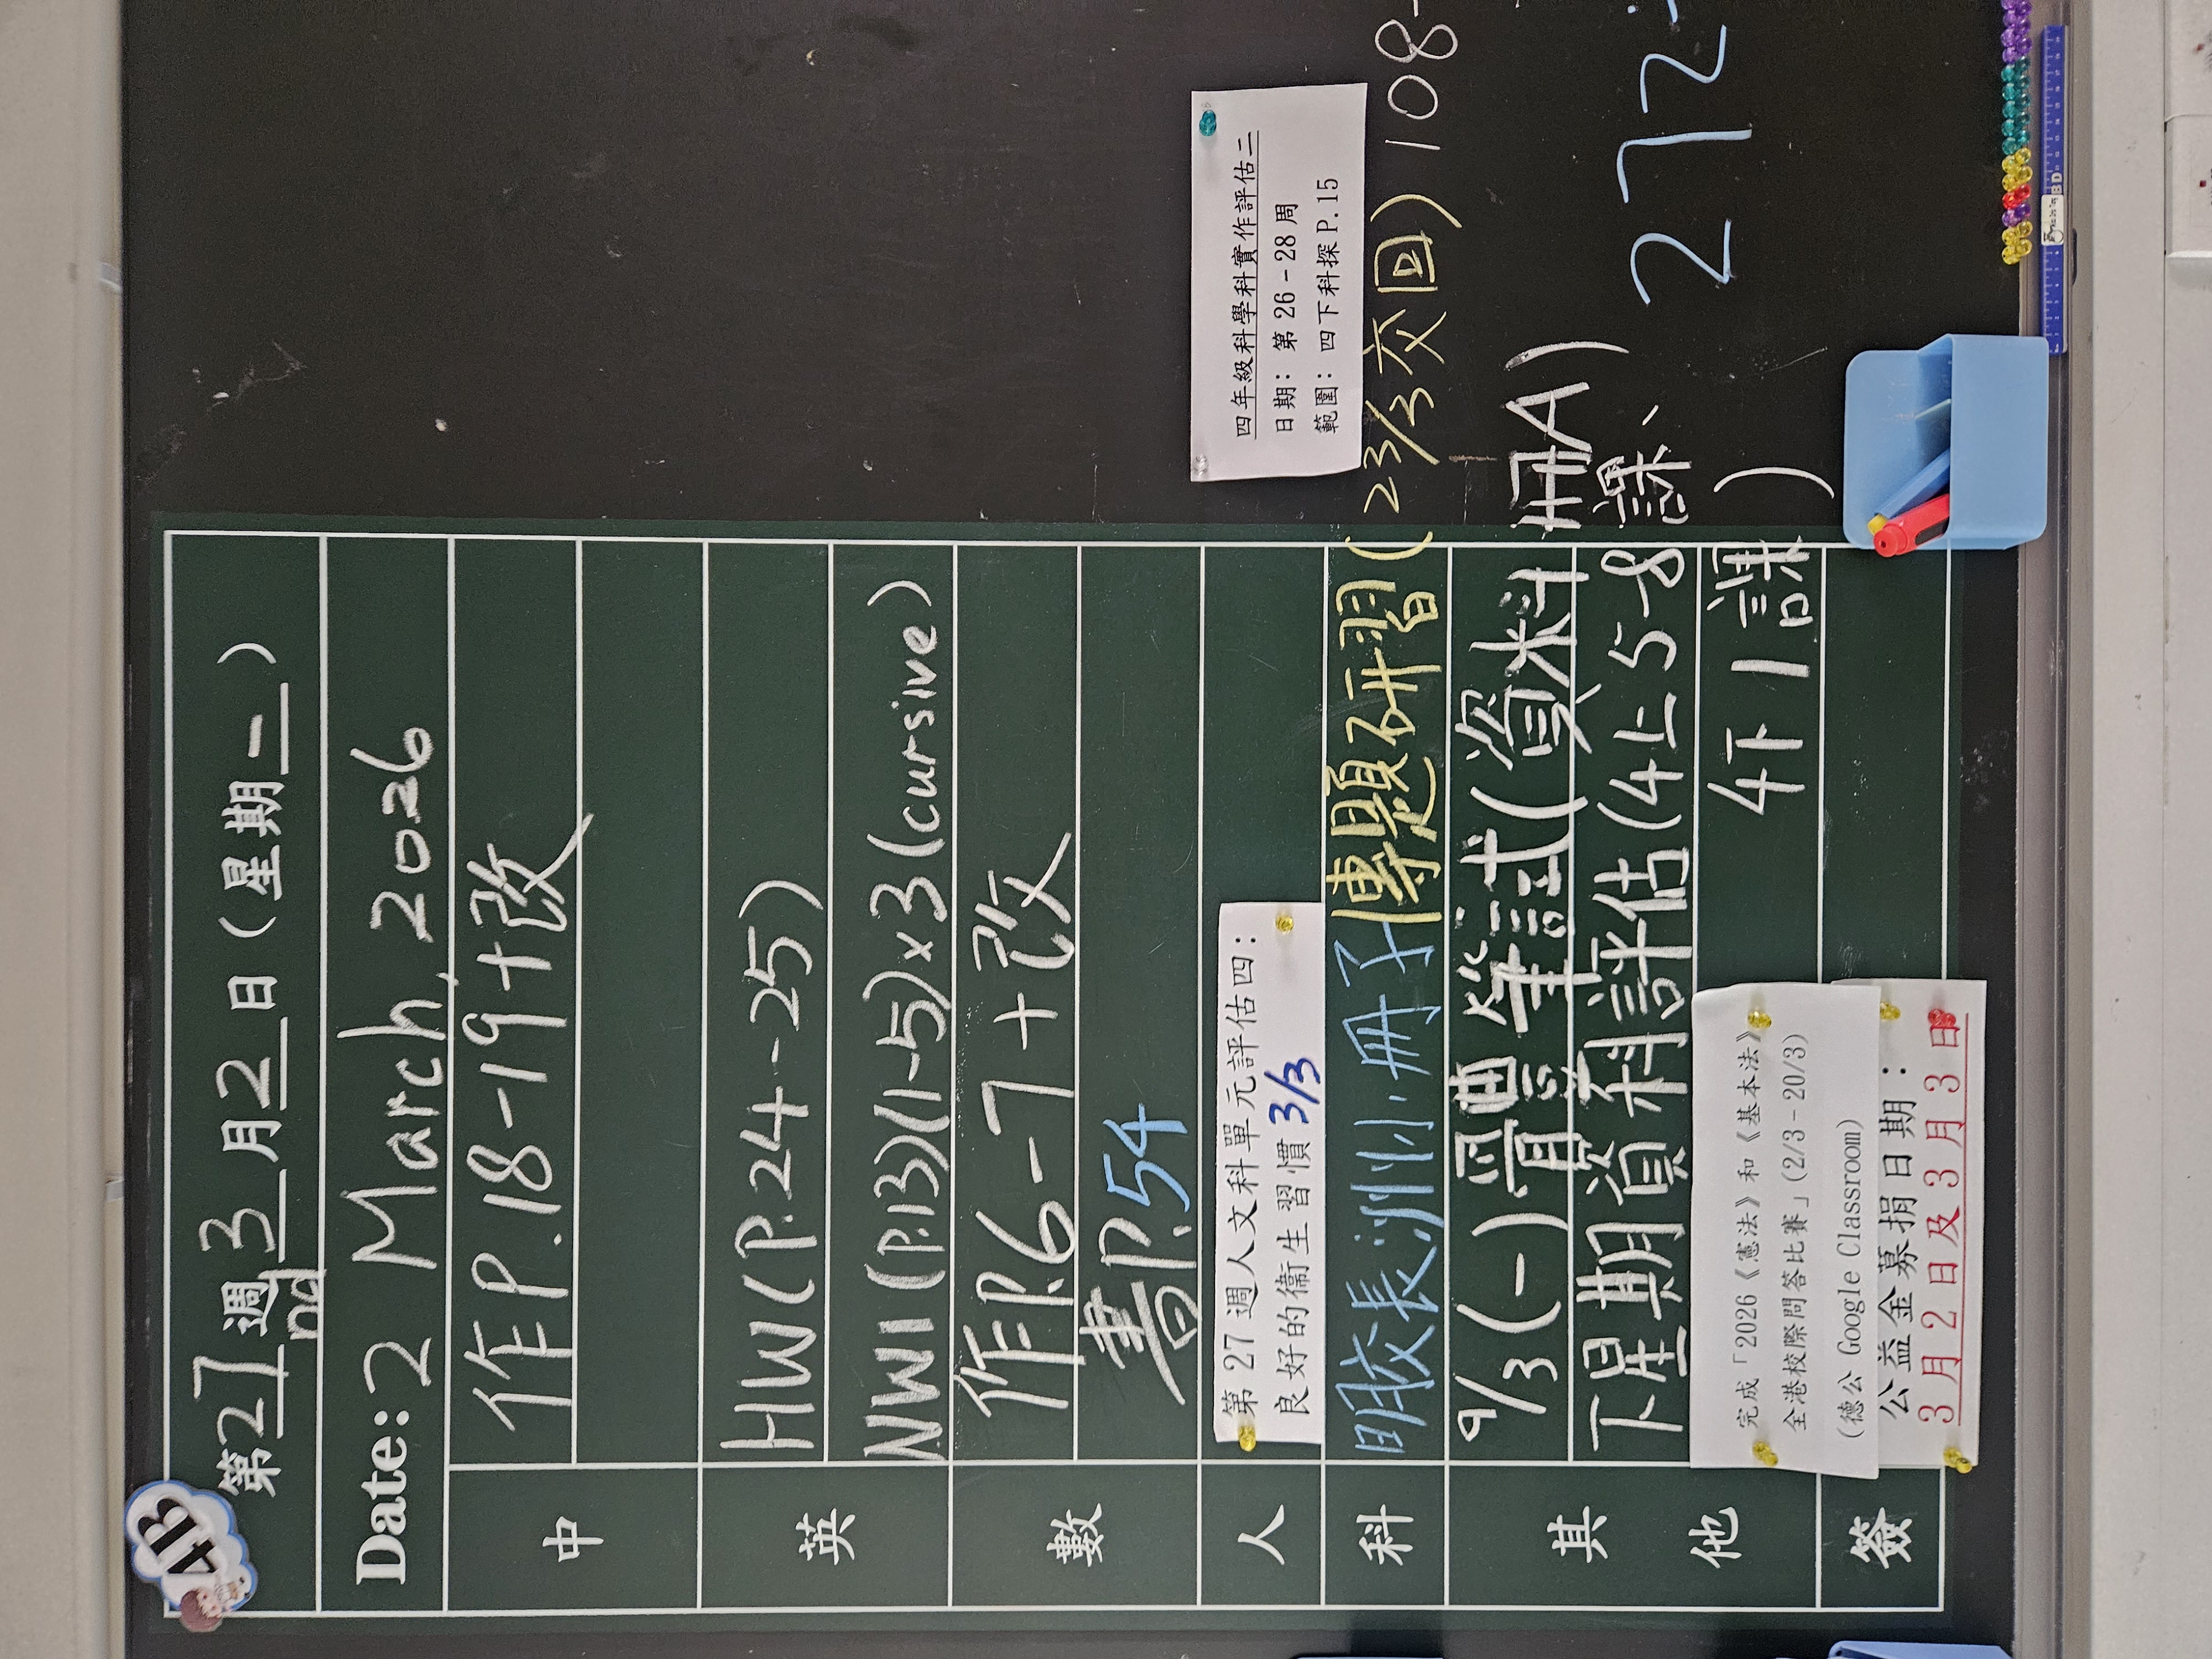 4B
第27週3月2日(星期一)
nd
Date: 2 March, 2026
中
作P.18-19+改
英
HW(P.24-25)
NW1(P.13)(1-5)×3(cursive)
數
作P.6-7+改
書P.54
人
第27週人文科單元評估四:
良好的衞生習慣 3/3
四年級科學科實作評估二
日期: 第26-28周
範圍: 四下科探P.15
科
明校長洲小冊子 專題研習(23/3交回) 108-
其他
9/3(一) 普 筆試(資料冊A)
下星期資科評估(4上5-8課、
4下1課)
272
完成「2026《憲法》和《基本法》
全港校際問答比賽」(2/3-20/3)
(德公 Google Classroom)
簽
公益金募捐日期:
3月2日及3月3日